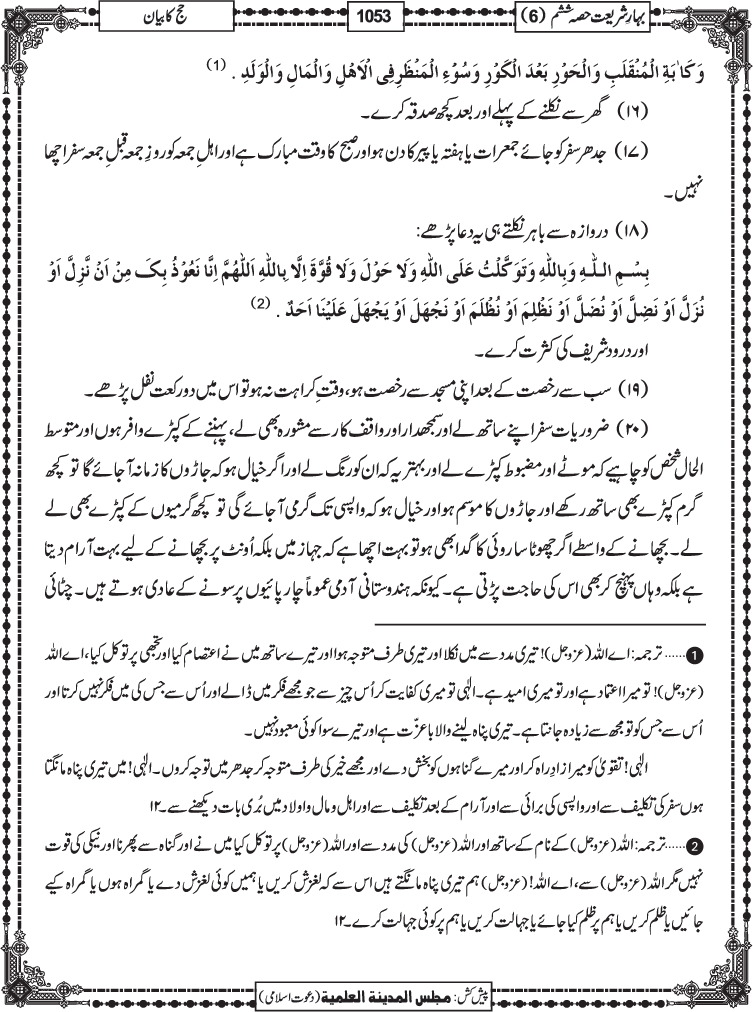 بہارِ شریعت حصہ ششم (6)
1053
حج کا بیان
وَکَاٰبَۃِ الْمُنْقَلَبِ وَالْحَوْرِ بَعْدَ الْکَوْرِ وَسُوْءِ الْمَنْظَرِفِی الْاَھْلِ وَالْمَالِ وَالْوَلَدِ . (1)
(۱۶) گھر سے نکلنے کے پہلے اور بعد کچھ صدقہ کرے۔
(۱۷) جدھر سفر کو جائے جمعرات یا ہفتہ یا پیر کا دن ہو اور صبح کا وقت مبارک ہے اور اہلِ جمعہ کو روزِ جمعہ قبلِ جمعہ سفر اچھا
نہیں۔
(۱۸) دروازہ سے باہر نکلتے ہی یہ دعا پڑھے:
بِسْمِ اللّٰہِ وَبِاللّٰہِ وَتَوَکَّلْتُ عَلَی اللّٰہِ وَلَا حَوْلَ وَلَا قُوَّۃَ اِلَّا بِاللّٰہِ اَللّٰھُمَّ اِنَّا نَعُوْذُ بِکَ مِنْ اَنْ نَّزِلَّ اَوْ
نُزَلَّ اَوْ نَضِلَّ اَوْ نُضَلَّ اَوْ نَظْلِمَ اَوْ نُظْلَمَ اَوْ نَجْھَلَ اَوْ یَجْھَلَ عَلَیْنَا اَحَدٌ . (2)
اور درود شریف کی کثرت کرے۔
(۱۹) سب سے رخصت کے بعد اپنی مسجد سے رخصت ہو، وقتِ کراہت نہ ہو تو اس میں دو رکعت نفل پڑھے۔
(۲۰) ضروریات سفر اپنے ساتھ لے اور سمجھدار اور واقف کار سے مشورہ بھی لے، پہننے کے کپڑے وافر ہوں اور متوسط
الحال شخص کو چاہیے کہ موٹے اور مضبوط کپڑے لے اور بہتر یہ کہ ان کو رنگ لے اور اگر خیال ہو کہ جاڑوں کا زمانہ آجائے گا تو کچھ
گرم کپڑے بھی ساتھ رکھے اور جاڑوں کا موسم ہو اور خیال ہو کہ واپسی تک گرمی آجائے گی تو کچھ گرمیوں کے کپڑے بھی لے
لے۔ بچھانے کے واسطے اگر چھوٹا سا روئی کا گدا بھی ہو تو بہت اچھا ہے کہ جہاز میں بلکہ اُونٹ پر بچھانے کے لیے بہت آرام دیتا
ہے بلکہ وہاں پہنچ کر بھی اس کی حاجت پڑتی ہے۔ کیونکہ ہندوستانی آدمی عموماً چارپائیوں پر سونے کے عادی ہوتے ہیں۔ چٹائی
1 ...... ترجمہ: اے اللہ (عزوجل)! تیری مدد سے میں نکلا اور تیری طرف متوجہ ہوا اور تیرے ساتھ میں نے اعتصام کیا اور تجھی پر توکل کیا، اے اللہ
(عزوجل)! تو میرا اعتماد ہے اور تو میری امید ہے۔ الٰہی تو میری کفایت کر اُس چیز سے جو مجھے فکر میں ڈالے اور اُس سے جس کی میں فکر نہیں کرتا اور
اُس سے جس کو تو مجھ سے زیادہ جانتا ہے۔ تیری پناہ لینے والا باعزّت ہے اور تیرے سوا کوئی معبود نہیں۔
الٰہی! تقویٰ کو میرا زادِ راہ کر اور میرے گناہوں کو بخش دے اور مجھے خیر کی طرف متوجہ کر جدھر میں توجہ کروں۔ الٰہی! میں تیری پناہ مانگتا
ہوں سفر کی تکلیف سے اور واپسی کی برائی سے اور آرام کے بعد تکلیف سے اور اہل و مال و اولاد میں بُری بات دیکھنے سے۔ ۱۲
2 ...... ترجمہ: اللہ (عزوجل) کے نام کے ساتھ اور اللہ (عزوجل) کی مدد سے اور اللہ (عزوجل) پر توکل کیا میں نے اور گناہ سے پھرنا اور نیکی کی قوت
نہیں مگر اللہ (عزوجل) سے، اے اللہ! (عزوجل) ہم تیری پناہ مانگتے ہیں اس سے کہ لغزش کریں یا ہمیں کوئی لغزش دے یا گمراہ ہوں یا گمراہ کیے
جائیں یا ظلم کریں یا ہم پر ظلم کیا جائے یا جہالت کریں یا ہم پر کوئی جہالت کرے۔ ۱۲
پیش کش: مجلس المدینۃ العلمیۃ (دعوت اسلامی)